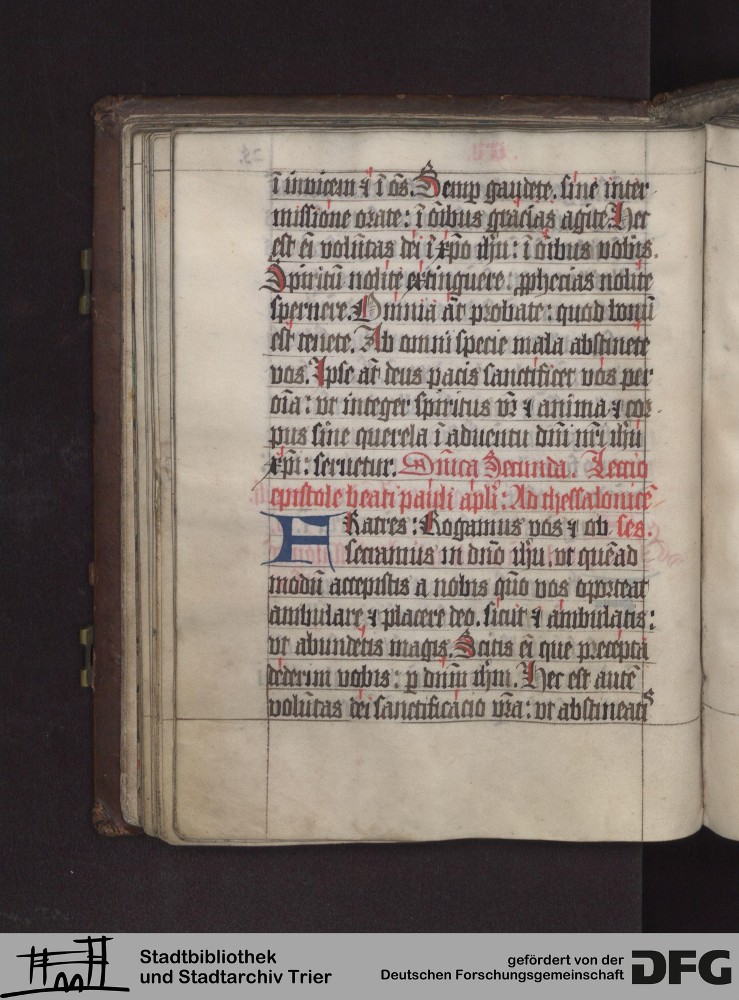 ī inuicem ⁊ ī oēs. Semp gaudete. sine inter
missione orate: ī oībus gracias agite. Hec
est ei volūtas dei ī xp̄o ih̄u: ī oībus vobis.
Spiritū nolite extinguere: ꝓphecias nolite
spernere. Omnia āt probate: quod bonū
est tenete. Ab omni specie mala abstinete
vos. Ipse āt deus pacis sanctificet vos per
oīa: vt integer spiritus vr̄ ⁊ anima ⁊ cor
pus sine querela ī aduentu dn̄i nr̄i ih̄u
xp̄i: seruetur. Dn̄ica Secunda. Lectio
epistole beati pauli apl̄i: Ad thessalonicē
FRatres: Rogamus vos ⁊ ob ses.
secramus in dn̄o ih̄u: vt quēad
modū accepistis a nobis quo vos oporteat
ambulare ⁊ placere deo. sicut ⁊ ambulatis:
vt abundetis magis. Scitis ei que precepta
dederim vobis: p dn̄m ih̄m. Hec est autē
volūtas dei sanctificacio vr̄a: vt abstineatis
Stadtbibliothek
und Stadtarchiv Trier
gefördert von der
Deutschen Forschungsgemeinschaft
DFG